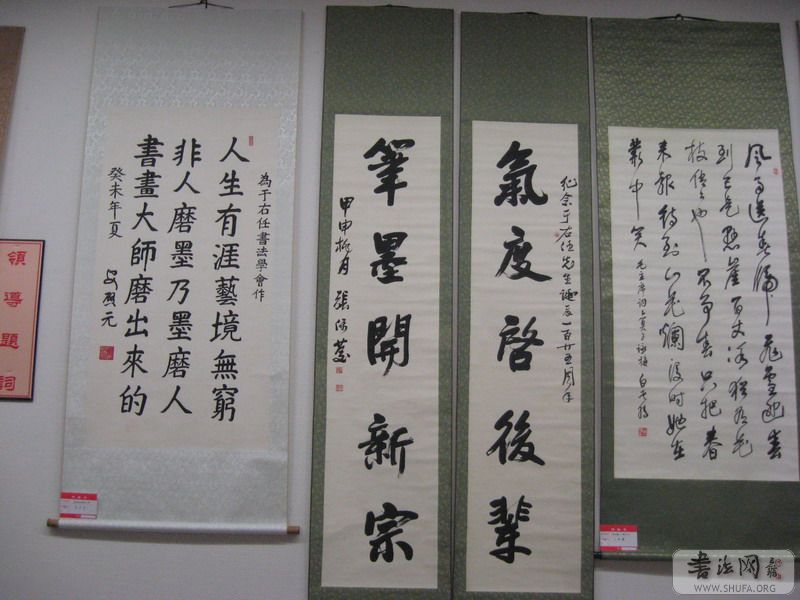 領導題詞
為于右任書法學會作
人生有涯藝境無窮
非人磨墨乃墨磨人
書畫大師磨出來的
癸未年夏
紀念于右任先生誕辰一百廿五周年
氣度啓後輩
筆墨開新宗
甲申桃月 張
風雨送春歸飛雪迎春
到已是懸崖百丈冰猶有花
枝俏俏也不爭春只把春
來報待到山花爛漫時她在
叢中笑 毛主席詞卜算子詠梅
書法网
WWW.SHUFA.ORG